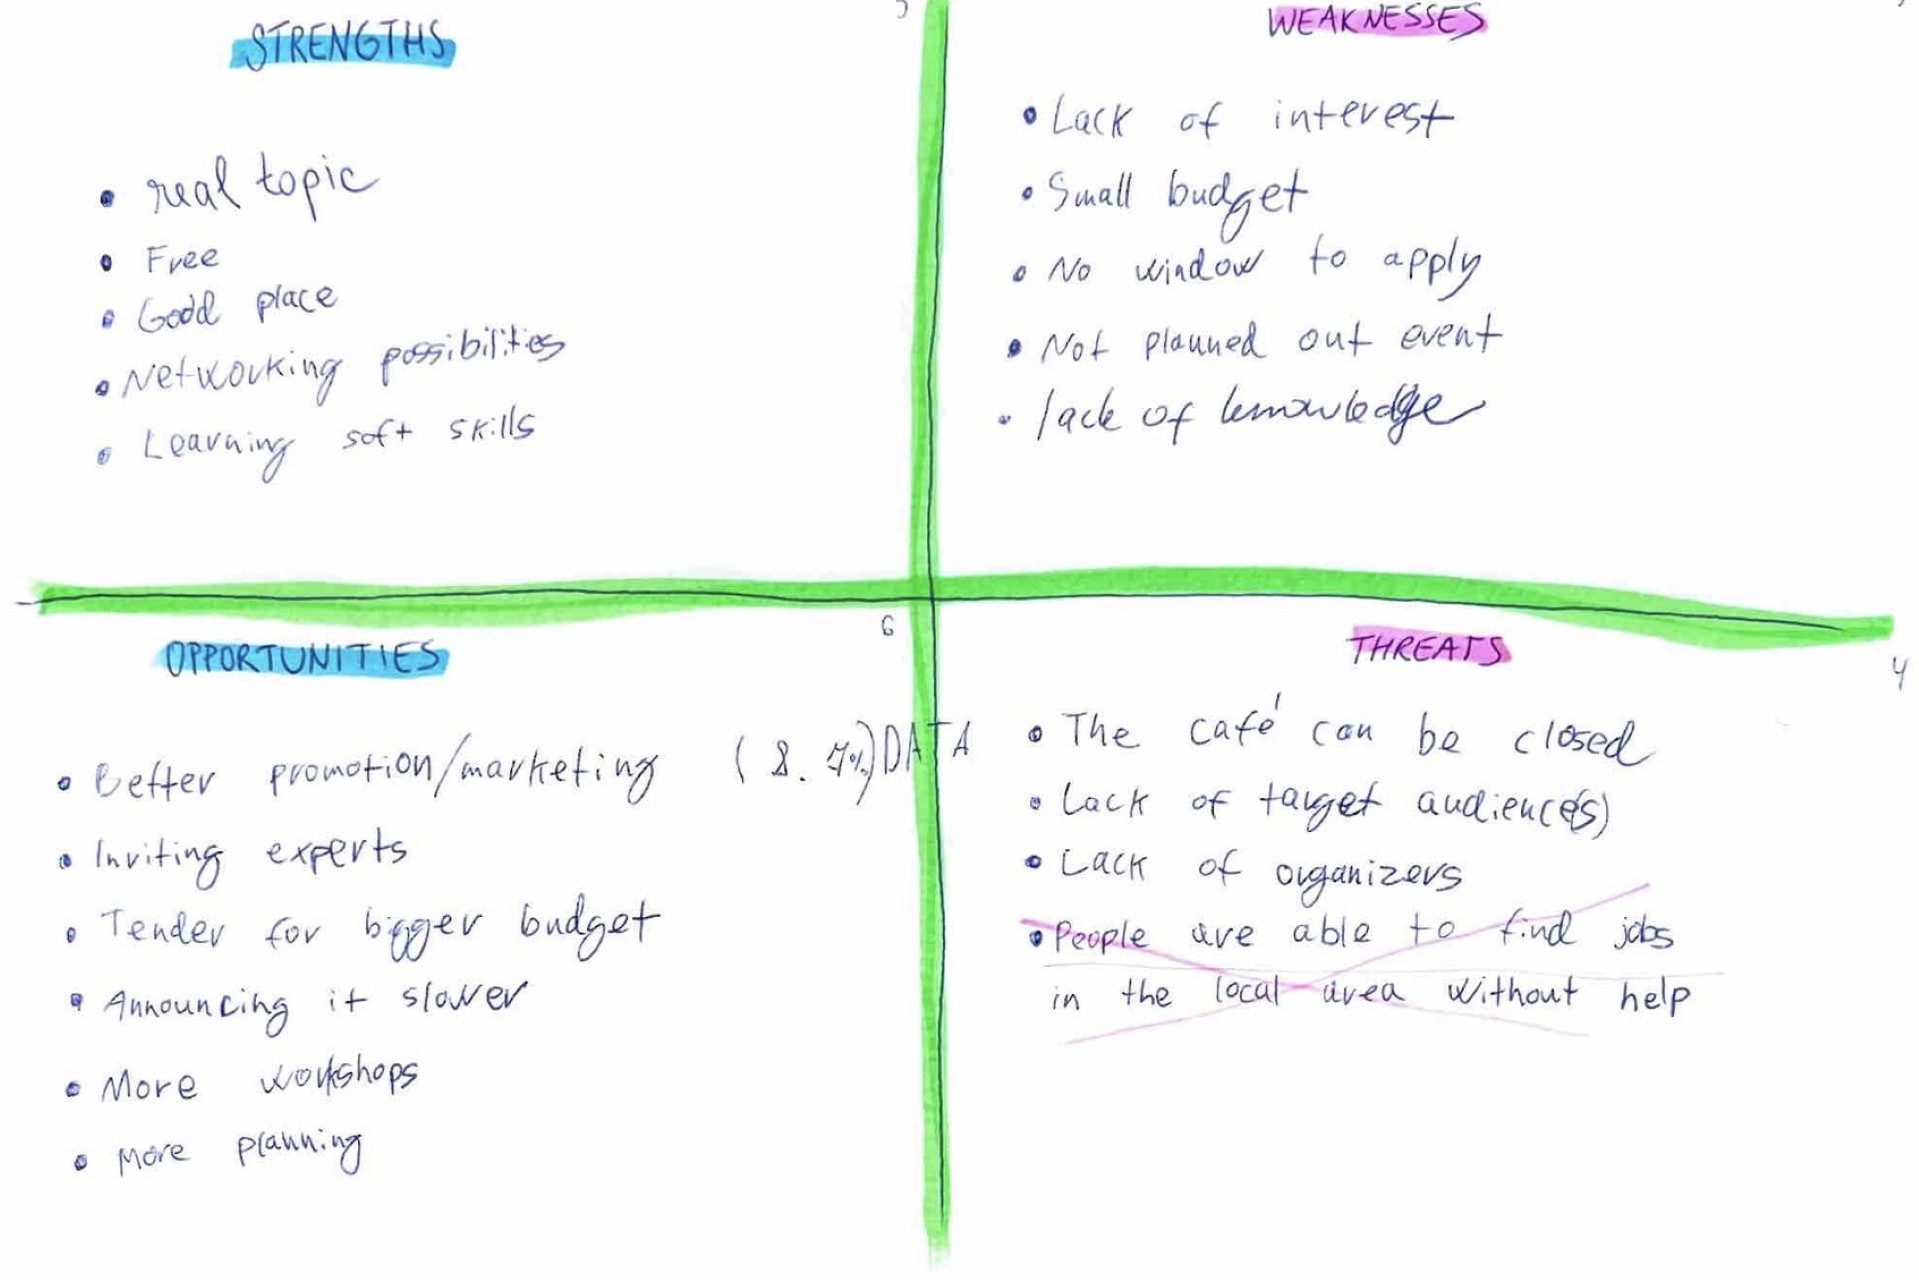 STRENGTHS
• real topic
• Free
• Good place
• Networking possibilities
• Learning soft skills
5
WEAKNESSES
• Lack of interest
• Small budget
• No window to apply
• Not planned out event
• lack of knowledge
6
OPPORTUNITIES
• Better promotion/marketing (8. %) DATA
• Inviting experts
• Tender for bigger budget
• Announcing it slower
• More workshops
• More planning
THREATS
4
• The café can be closed
• Lack of target audience(s)
• Lack of organizers
• People are able to find jobs
in the local area without help